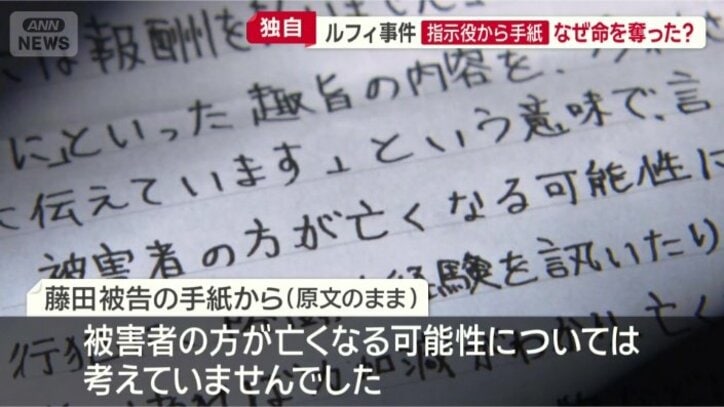 ANN
NEWS
独自 ルフィ事件 指示役から手紙 なぜ命を奪った?
は報酬を
に」といった趣旨の内容を、
に伝えています」という意味で、言
被害者の方が亡くなる可能性に
経験を訊いたり
藤田被告の手紙から(原文のまま)
行
加減がわかり亡く
被害者の方が亡くなる可能性については
考えていませんでした